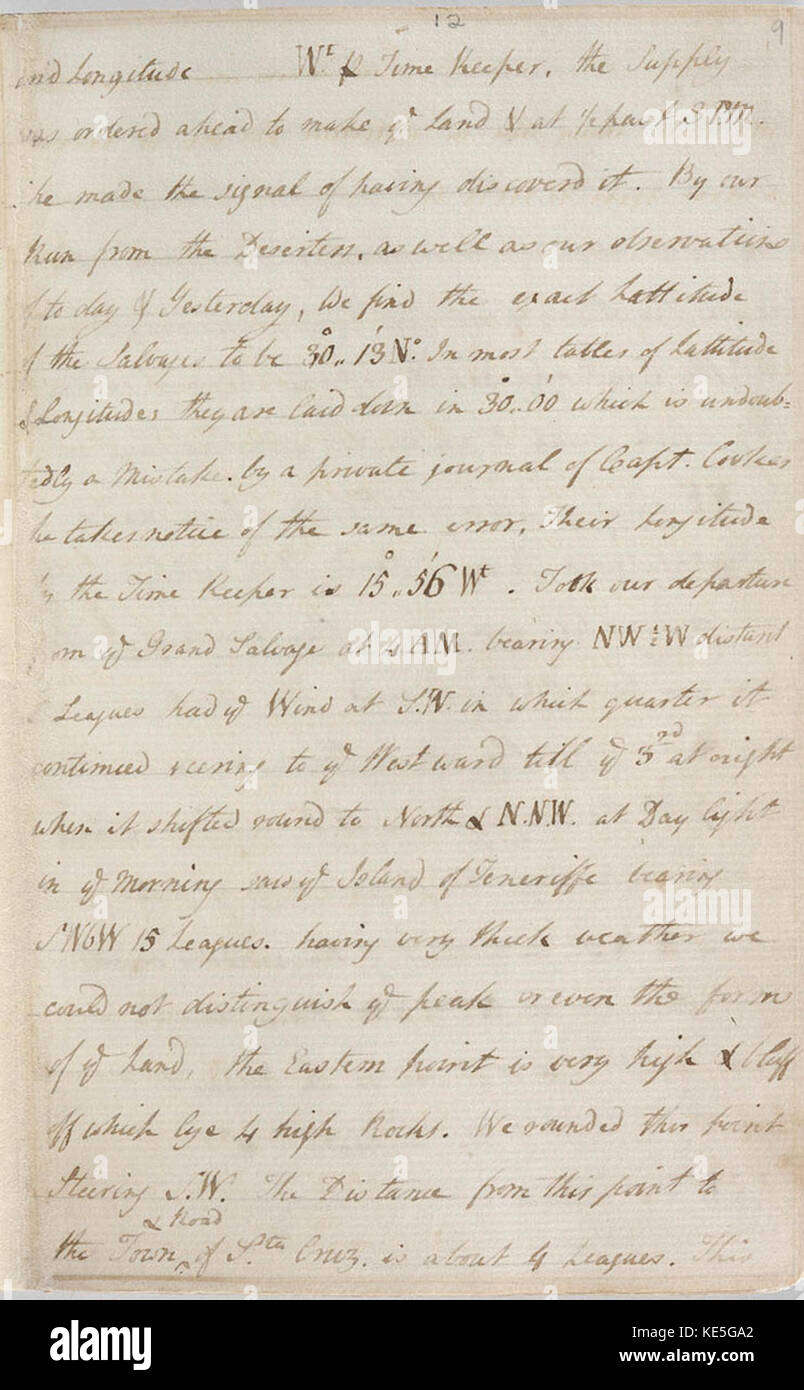 12
9
and Longitude Wt. p Time Keeper, the Supply
was ordered ahead to make ye Land & at ½ past 5 P.M.
he made the signal of having discoverd it. By our
Run from the Deserters, as well as our observations
of to day & Yesterday, We find the exact Lattitude
of the Salvages to be 30°..13' No. In most tables of Lattitude
& Longitudes they are laid down in 30°..00' which is undoub=
tedly a Mistake. by a private journal of Capt. Cookes
he takes notice of the same error, Their Longitude
by the Time Keeper is 15°..56' Wt. Took our departure
from ye Grand Salvage at 4 AM. bearing NW½W distant
Leagues had ye Wind at S.W. in which quarter it
continued veering to ye Westward till ye 3rd at night
when it shifted round to North & N.N.W. at Day light
in ye Morning saw ye Island of Teneriffe bearing
SWbW 15 Leagues. having very thick weather we
could not distinguish ye peak or even the form
of ye Land, the Eastern point is very high & bluff
off which lye 4 high Rocks. We rounded this point
Steering S.W. The Distance from this point to
& Road
the Town ^ of Sta Cruz. is about 4 Leagues. This
alamy stock photo
alamy
alamy stock photo
KE5GA2
www.alamy.com